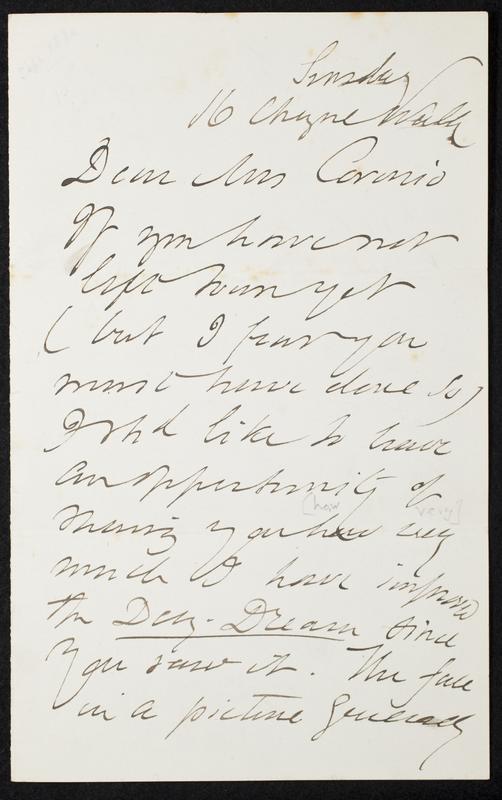 Sunday
16 Cheyne Walk
Dear Mrs Coronio
If you have not
left town yet
(but I fear you
must have done so)
I shd like to have
an opportunity of
[how very]
showing you how very
much I have improved
the Day-Dream since
you saw it. The face
in a picture generally